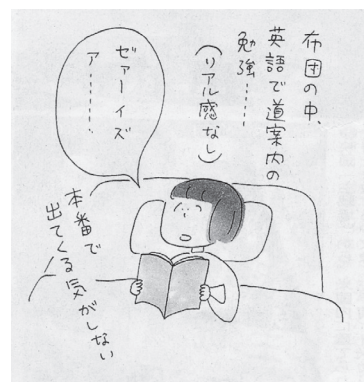 布団の中、
英語で道案内の
勉強……
(リアル感なし)
ゼァーイズ
ア……
本番で
出てくる気がしない